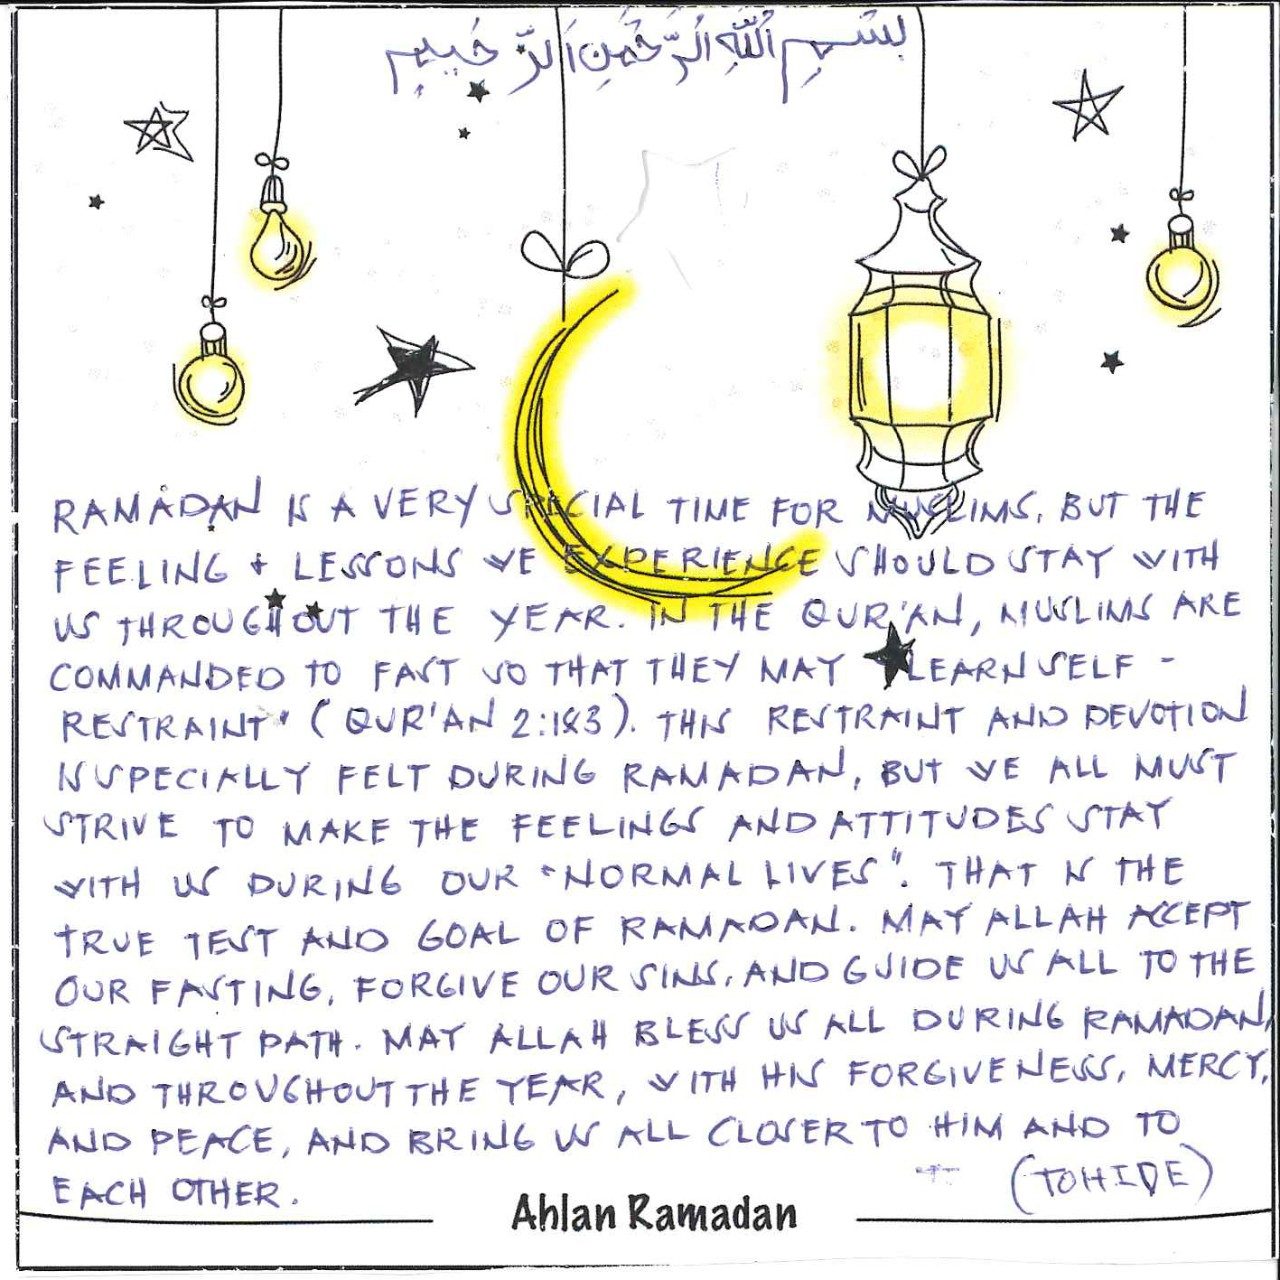 بِسْمِ اللّٰهِ الرَّحْمٰنِ الرَّحِيمِ
RAMADAN IS A VERY SPECIAL TIME FOR MUSLIMS, BUT THE
FEELING + LESSONS WE EXPERIENCE SHOULD STAY WITH
US THROUGHOUT THE YEAR. IN THE QUR'AN, MUSLIMS ARE
COMMANDED TO FAST SO THAT THEY MAY "LEARN SELF-
RESTRAINT" (QUR'AN 2:183). THIS RESTRAINT AND DEVOTION
IS SPECIALLY FELT DURING RAMADAN, BUT WE ALL MUST
STRIVE TO MAKE THE FEELINGS AND ATTITUDES STAY
WITH US DURING OUR "NORMAL LIVES". THAT IS THE
TRUE TEST AND GOAL OF RAMADAN. MAY ALLAH ACCEPT
OUR FASTING, FORGIVE OUR SINS, AND GUIDE US ALL TO THE
STRAIGHT PATH. MAY ALLAH BLESS US ALL DURING RAMADAN,
AND THROUGHOUT THE YEAR, WITH HIS FORGIVENESS, MERCY,
AND PEACE, AND BRING US ALL CLOSER TO HIM AND TO
EACH OTHER.
(TOHIDE)
Ahlan Ramadan